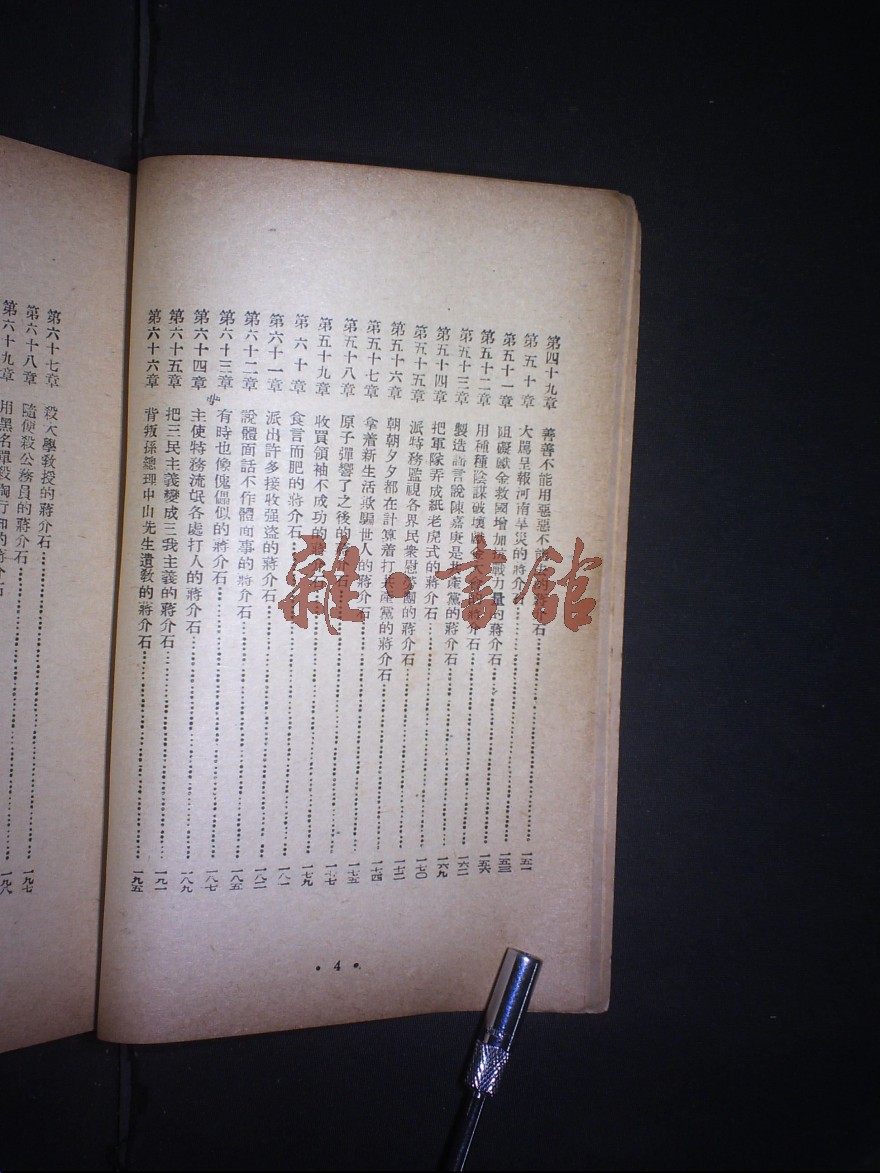 第四十九章 善善不能用惡惡不能去的蔣介石 一五一
第五十章 大罵呈報河南旱災的蔣介石 一五三
第五十一章 阻礙獻金救國增加抗戰力量的蔣介石 一五六
第五十二章 用種種陰謀破壞獻金大會的蔣介石 一六二
第五十三章 製造謠言說陳嘉庚是共產黨的蔣介石 一六九
第五十四章 把軍隊弄成紙老虎式的蔣介石 一七〇
第五十五章 派特務監視各界民衆慰勞團的蔣介石 一七二
第五十六章 朝朝夕夕都在計算着打共產黨的蔣介石 一七四
第五十七章 拿着新生活欺騙世人的蔣介石 一七五
第五十八章 原子彈響了之後的蔣介石 一七七
第五十九章 收買領袖不成功的蔣介石 一七九
第六十章 食言而肥的蔣介石 一八一
第六十一章 派出許多接收强盜的蔣介石 一八二
第六十二章 說體面話不作體面事的蔣介石 一八五
第六十三章 有時也像傀儡似的蔣介石 一八七
第六十四章 主使特務流氓各處打人的蔣介石 一八九
第六十五章 把三民主義變成三我主義的蔣介石 一九一
第六十六章 背叛孫總理中山先生遺教的蔣介石 一九五
• 4 •
第六十七章 殺大學教授的蔣介石 一九七
第六十八章 隨便殺公務員的蔣介石 一九八
第六十九章 用黑名單殺陶行知的蔣介石
雜·書館